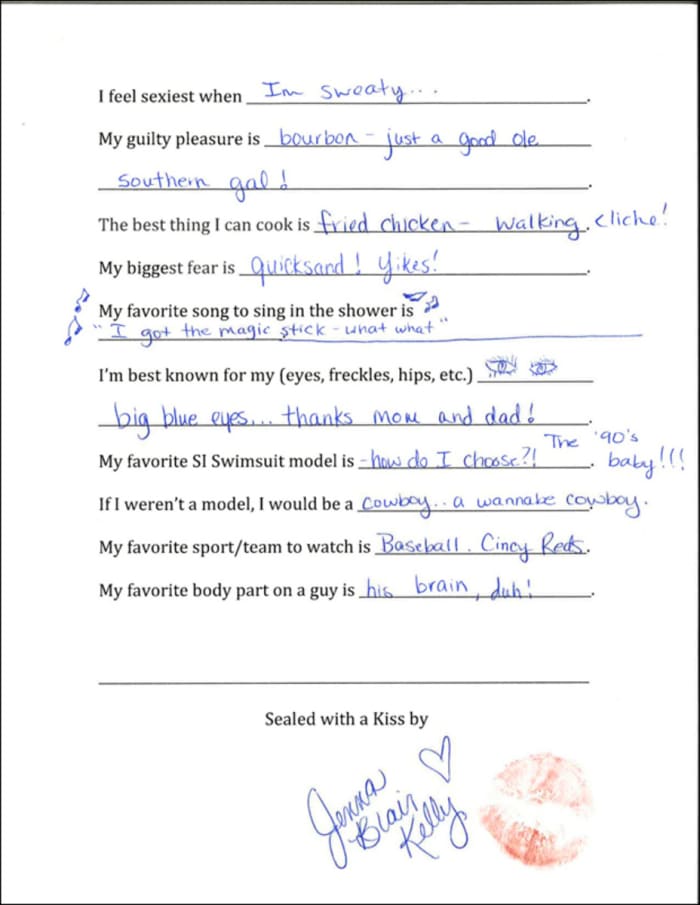 I feel sexiest when Im sweaty... .
My guilty pleasure is bourbon - just a good ole
southern gal! .
The best thing I can cook is fried chicken - walking cliche! .
My biggest fear is quicksand! Yikes! .
My favorite song to sing in the shower is
"I got the magic stick - what what"
I'm best known for my (eyes, freckles, hips, etc.)
big blue eyes... thanks mom and dad! .
The '90's
My favorite SI Swimsuit model is - how do I choose?! . baby!!!
If I weren't a model, I would be a cowboy.. a wannabe cowboy.
My favorite sport/team to watch is Baseball. Cincy Reds.
My favorite body part on a guy is his brain, duh! .
Sealed with a Kiss by
Jenna
Blair
Kelly